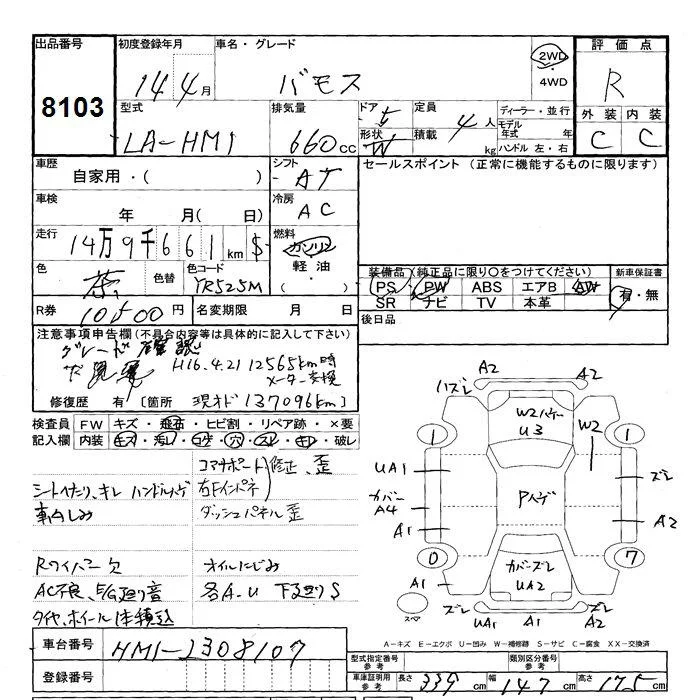 出品番号 初度登録年月 車名・グレード 評価点
8103 14 4月 バモス 2WD・4WD R
型式 排気量 ドア 定員 ディーラー・並行 外装 内装
LA-HM1 660cc 5 4人 モデル年式 年 C C
形状 W 積載 kg ハンドル 左・右
車歴 シフト セールスポイント (正常に機能するものに限ります)
自家用・( ) AT
車検 冷房
年 月( 日) AC
走行 燃料
14万9千661km $ ガソリン
軽油・
( )
色 色替 色コード 装備品(純正品に限り○をつけてください) 新車保証書
茶 YR525M PS PW ABS エアB AW 有・無
SR ナビ TV 本革
R券 10500円 名変期限 月 日 後日品
注意事項申告欄(不具合内容等は具体的に記入して下さい)
グレード確認
H16.4.21 12565km時
メーター交換
修復歴 有 [箇所 現オド137096km]
検査員 FW キズ・飛石・ヒビ割・リペア跡・×要
記入欄 内装 キズ・汚レ・コゲ・穴・スレ・キレ・破レ
コアサポート修正、歪
シートへたり、キレ ハンドルハゲ 右Fインパネ
車内しみ ダッシュパネル歪
Rワイパー欠 オイルにじみ
AC不良、E/G廻り音 各A-U 下廻りS
タイヤ、ホイール1本積込
A2
ハズレ A2
W2ハゲ
U3 W2
1 1
UA1 ズレ
カバー
A4 Pハゲ
A1 A2
0 7
カバーズレ
A1 UA2
スペア ズレ ズレ
UA1 A1 A2
A-キズ E-エクボ U-凹み W-補修跡 S-サビ C-腐食 XX-交換済
車台番号 HM1-2308107
型式指定番号 参考 類別区分番号 参考
登録番号 車庫証明用 参考 長さ 339cm 幅 147cm 高さ 175cm